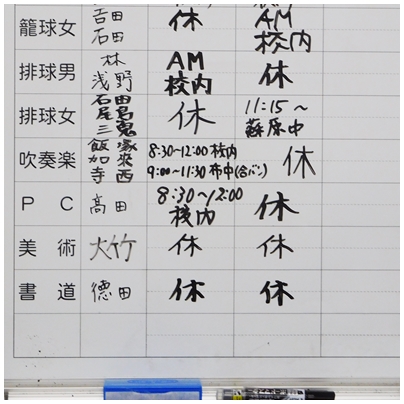 籠球女 吉田 石田 休 AM 校内
排球男 林 浅野 AM 校内 休
排球女 石田 尾島 三鬼 休 11:15~ 蘇原中
吹奏楽 飯塚 加来 寺西 8:30~12:00 校内 9:00~11:30 市中(合バン) 休
PC 高田 8:30~12:00 校内 休
美術 大竹 休 休
書道 德田 休 休